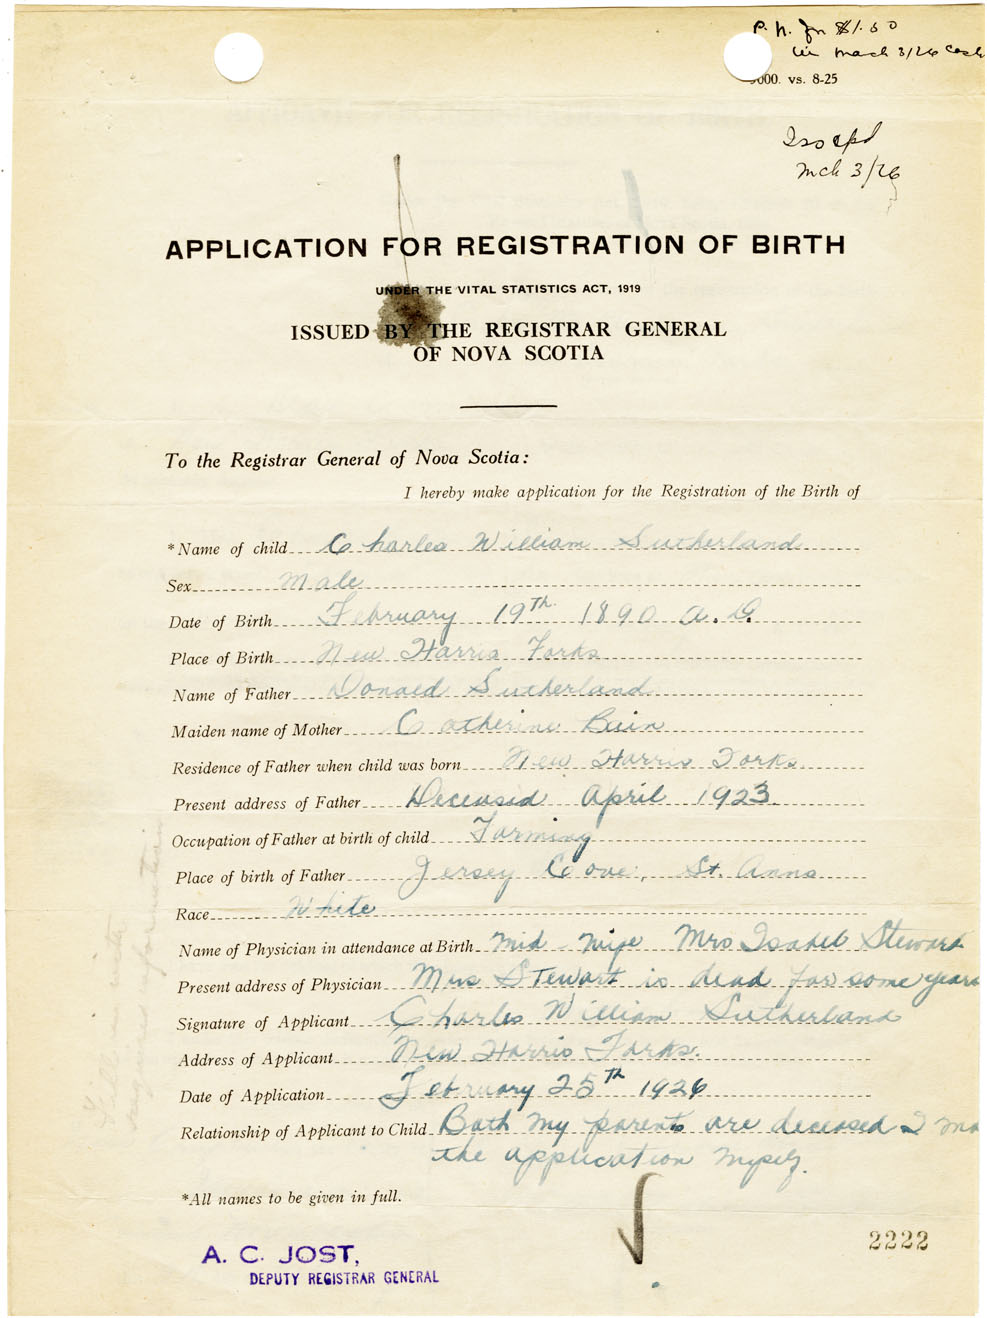 P. N. for $1.50
in March 3/26 Cash
000. vs. 8-25
Mch 3/26
APPLICATION FOR REGISTRATION OF BIRTH
UNDER THE VITAL STATISTICS ACT, 1919
ISSUED BY THE REGISTRAR GENERAL
OF NOVA SCOTIA
To the Registrar General of Nova Scotia:
I hereby make application for the Registration of the Birth of
*Name of child Charles William Sutherland
Sex Male
Date of Birth February 19th 1890 A.D.
Place of Birth New Harris Forks
Name of Father Donald Sutherland
Maiden name of Mother Catherine
Residence of Father when child was born New Harris Forks.
Present address of Father Deceased April 1923
Occupation of Father at birth of child Farming
Place of birth of Father Jersey Cove, St. Anns
Race White
Name of Physician in attendance at Birth Mid-wife Mrs Isabel Stewart
Present address of Physician Mrs Stewart is dead for some years
Signature of Applicant Charles William Sutherland
Address of Applicant New Harris Forks.
Date of Application February 25th 1926
Relationship of Applicant to Child Both my parents are deceased I ma
the application myself.
*All names to be given in full.
2222
A. C. JOST,
DEPUTY REGISTRAR GENERAL